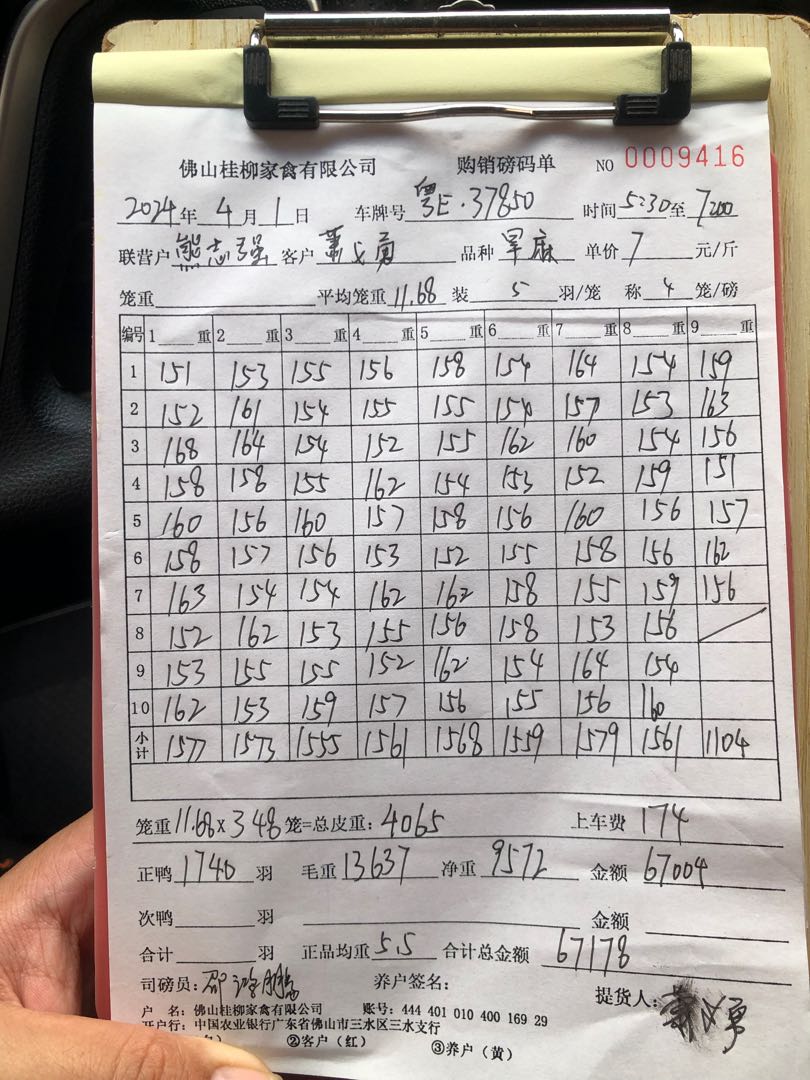 佛山桂柳家禽有限公司 购销磅码单 NO 0009416
2024年 4月 1日 车牌号 粤E·37850 时间 5:30 至 7:00
联营户 熊志强 客户 品种 单价 7 元/斤
笼重 平均笼重 11.68 装 5 羽/笼 称 4 笼/磅
编号 1 重 2 重 3 重 4 重 5 重 6 重 7 重 8 重 9 重
1 151 153 155 156 158 154 164 154 159
2 152 161 154 155 155 154 157 153 163
3 168 164 154 152 155 162 160 154 156
4 158 158 155 162 154 153 152 159 151
5 160 156 160 157 158 156 160 156 157
6 158 157 156 153 152 155 158 156 162
7 163 154 154 162 162 158 155 159 156
8 152 162 153 155 156 158 153 156
9 153 155 155 152 162 154 164 154
10 162 153 159 157 156 155 156 160
小计 1577 1573 1555 1561 1568 1559 1579 1561 1104
笼重 11.68 × 348 笼=总皮重: 4065 上车费 174
正鸭 1740 羽 毛重 13637 净重 9572 金额 67004
次鸭 羽 金额
合计 羽 正品均重 5.5 合计总金额 67178
司磅员: 养户签名: 提货人:
户 名: 佛山桂柳家禽有限公司 账号: 444 401 010 400 169 29
开户行: 中国农业银行广东省佛山市三水区三水支行
②客户(红) ③养户(黄)